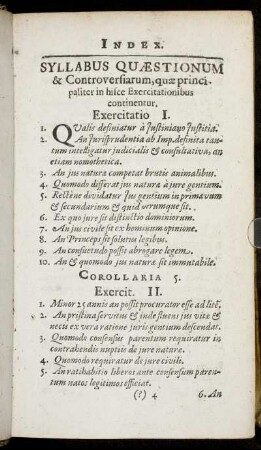 INDEX.
SYLLABUS QUÆSTIONUM
& Controversiarum, quæ princi-
paliter in hisce Exercitationibus
continentur,
Exercitatio I.
1. QUalis definiatur à Justiniano Justitia.
2. An Jurisprudentia ab Imp. definita tan-
tum intelligatur judicialis & consultativa, an
etiam nomothetica.
3. An jus naturæ competat brutis animalibus.
4. Quomodo differat jus naturæ à jure gentium.
5. Rectène dividatur Jus gentium in primævum
& secundarium & quid utrumque sit.
6. Ex quo jure sit distinctio dominiorum.
7. An jus civile sit ex hominum opinione.
8. An Princeps sit solutus legibus.
9. An consuetudo possit abrogare legem.
10. An & quomodo jus naturæ sit immutabile.
COROLLARIA 5.
Exercit. II.
1. Minor 25 annis an possit procurator esse ad lites.
2. An pristina servitus & inde fluens jus vitæ &
necis ex vera ratione juris gentium descendat.
3. Quomodo consensus parentum requiratur in
contrahendis nuptiis de jure naturæ.
4. Quomodo requiratur de jure civili.
5. An ratihabitio liberos ante consensum paren-
tum natos legitimos efficiat.
(?) 4 6. An